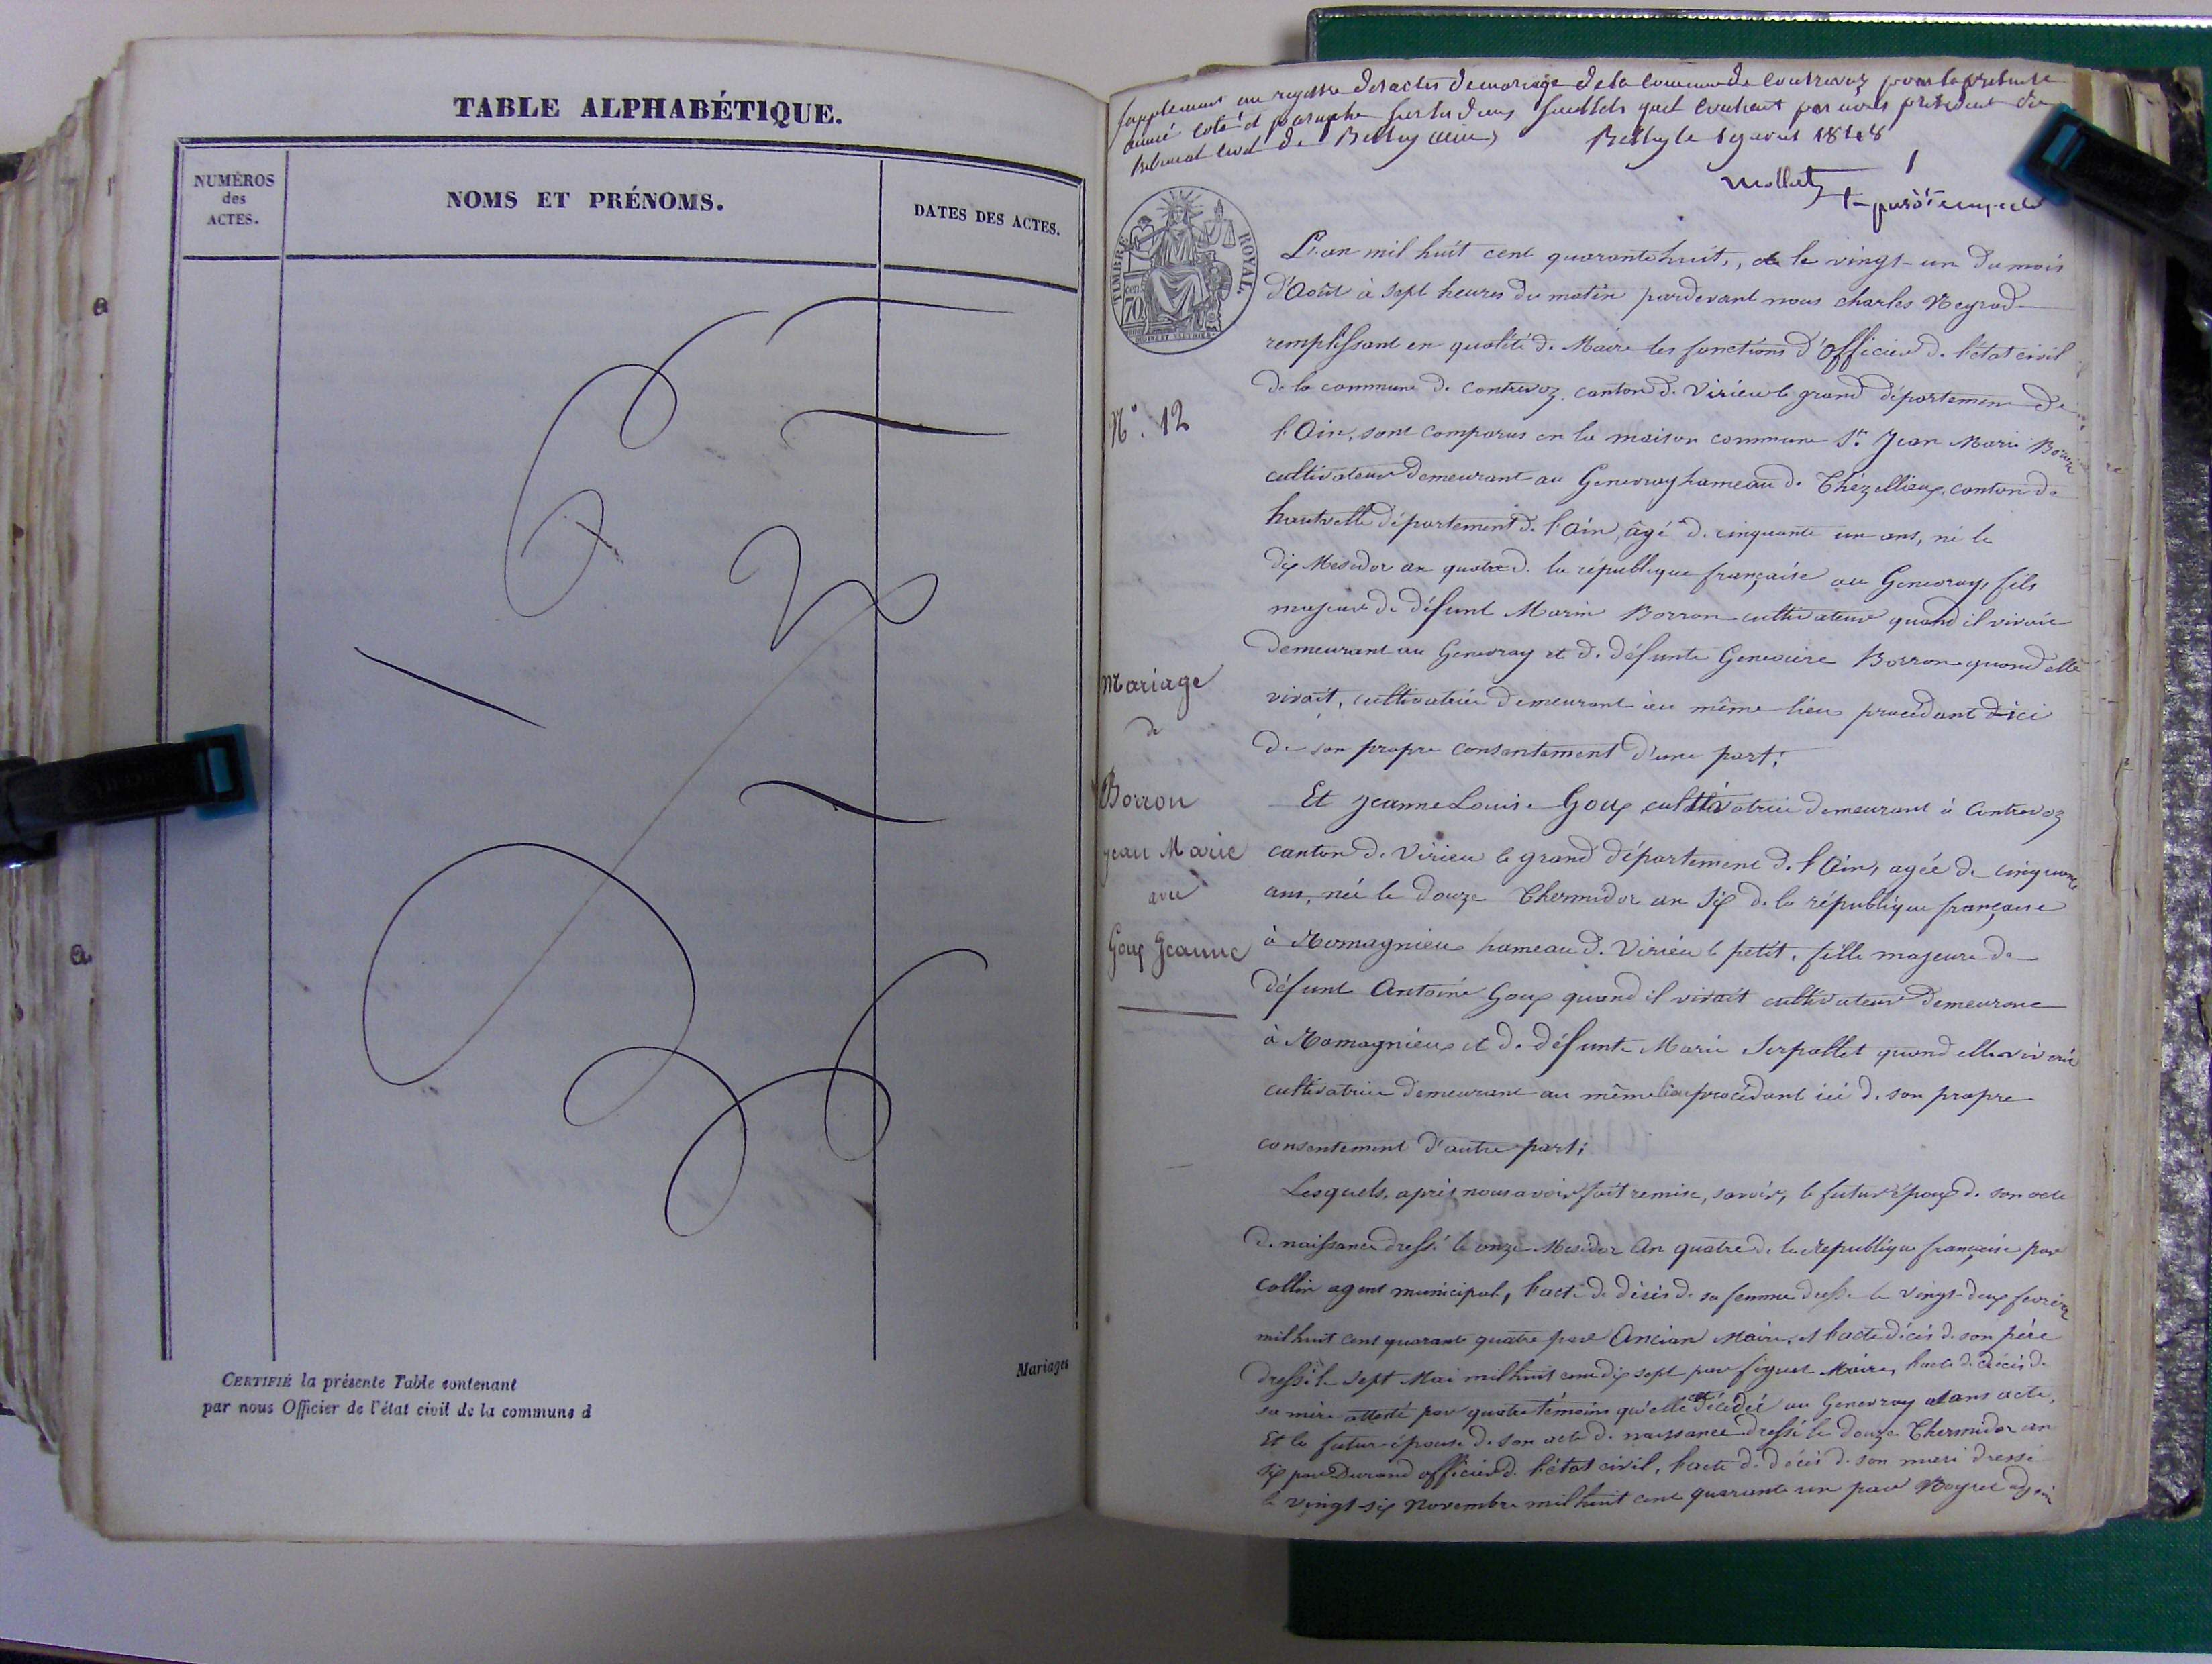 TABLE ALPHABÉTIQUE.
NUMÉROS
des
ACTES.
NOMS ET PRÉNOMS.
DATES DES ACTES.
CERTIFIÉ la présente Table contenant
par nous Officier de l'état civil de la commune d
Mariages
supplement au registre des actes de mariage de la commune de contrevoz pour la presente
année coté et paraphé sur les deux feuillets quil contient par nous president du
tribunal civil de Belley (ain) Belley le 19 aout 1848
TIMBRE ROYAL
70
L'an mil huit cent quarante huit, le vingt-un du mois
d'Août à sept heures du matin pardevant nous charles Neyrod
remplissant en qualité de Maire les fonctions d'Officier de l'état civil
de la commune de contrevoz, canton de Virieu le grand département de
N° 12
l'Ain, sont comparus en la maison commune Sr. Jean Marie Borron
cultivateur demeurant au Genevray hameau de Thézillieu, canton de
hauteville département de l'Ain, âgé de cinquante un ans, né le
dix Mesidor an quatre de la république française au Genevray, fils
majeur de défunt Marin Borron cultivateur quand il vivait
demeurant au Genevray et de défunte Genevieve Borron quand elle
Mariage
de
Borron
jean Marie
avec
Goux Jeanne
vivait, cultivatrice demeurant au même lieu procédant ici
de son propre consentement d'une part;
Et jeanne Louise Goux cultivatrice demeurant à Contrevoz
canton de Virieu le grand département de l'Ain, agée de cinquante
ans, née le douze Thermidor an six de la république française
à Romagnieu hameau de Virieu le petit, fille majeure de
défunt Antoine Goux quand il vivait cultivateur demeurant
à Romagnieu et de défunte Marie Serpollet quand elle vivait
cultivatrice demeurant au même lieu procédant ici de son propre
consentement d'autre part;
Lesquels, après nous avoir fait remise, savoir, le futur époux de son acte
de naissance dressé le onze Mesidor An quatre de la république française par
Collin agent municipal, l'acte de décès de sa femme dressé le vingt-deux fevrier
mil huit cent quarante quatre par Ancian Maire, et l'acte décès de son père
dressé le sept Mai mil huit cent dix sept par figuet Maire, l'acte de décès de
sa mère attesté par quatre témoins qu'elle est décédée au Genevray sans acte,
Et la future épouse de son acte de naissance dressé le douze Thermidor an
six par Durand officier de l'état civil, l'acte de décès de son mari dressé
le vingt-six Novembre mil huit cent quarante un par